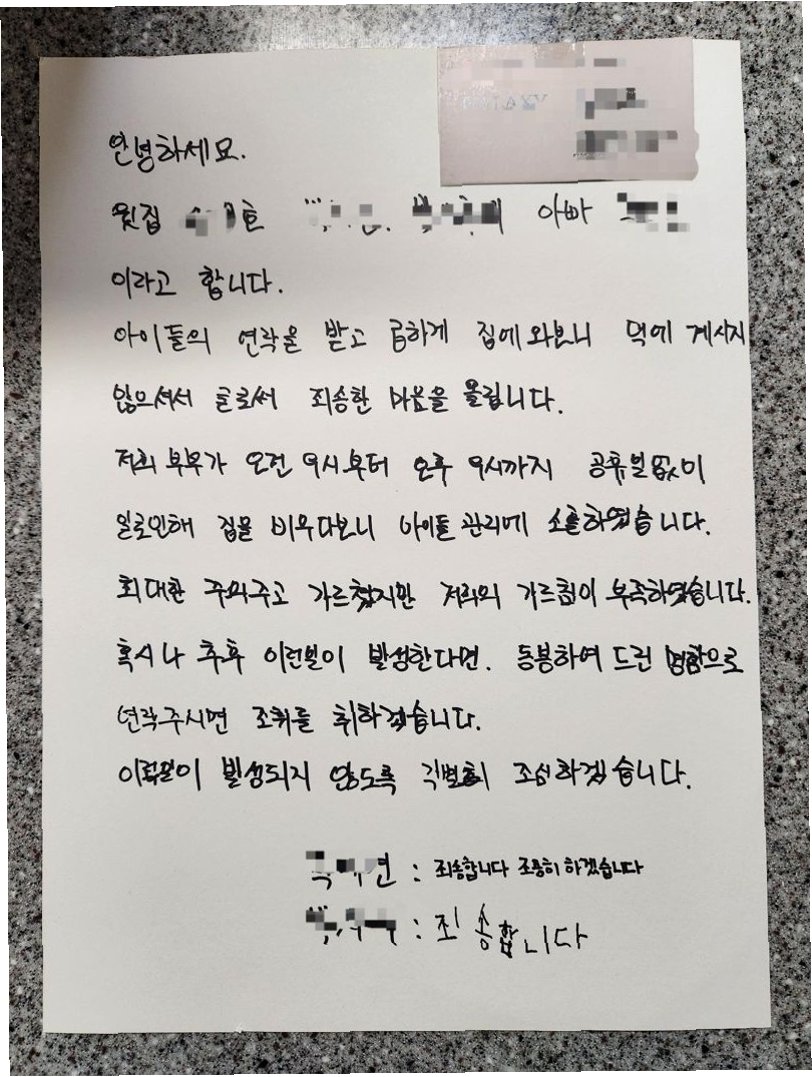 GALAXY
안녕하세요.
윗집 호 아빠
이라고 합니다.
아이들의 연락을 받고 급하게 집에 와보니 댁에 계시지
않으셔서 글로써 죄송한 마음을 올립니다.
저희 부부가 오전 9시부터 오후 9시까지 공휴일없이
일로인해 집을 비우다보니 아이들 관리에 소홀하였습니다.
최대한 주의주고 가르쳤지만 저희의 가르침이 부족하였습니다.
혹시나 추후 이런일이 발생한다면. 동봉하여 드린 명함으로
연락주시면 조취를 취하겠습니다.
이런일이 발생되지 않도록 각별히 조심하겠습니다.
연 : 죄송합니다 조용히 하겠습니다
: 죄송합니다